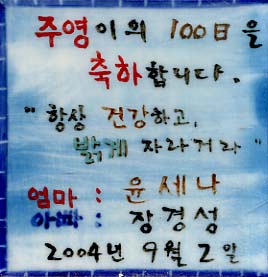 주영이의 100日을
축하합니다.
"항상 건강하고,
밝게 자라거라"
엄마 : 윤세나
아빠 : 장경성
2004년 9월 2일